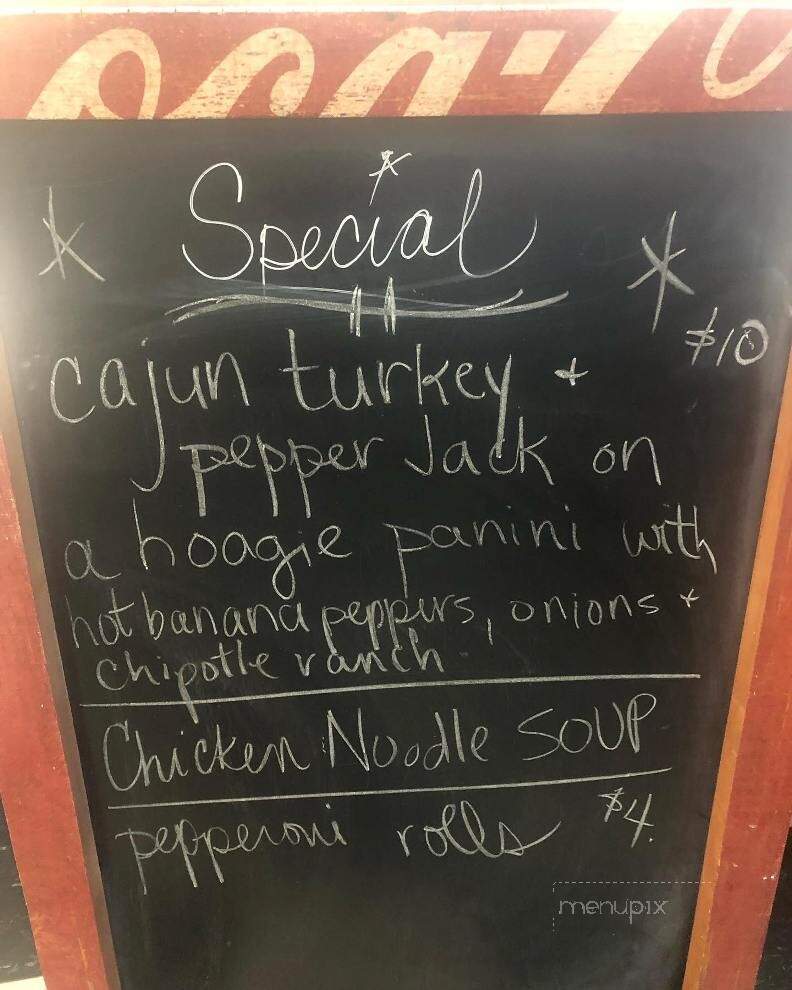 oca-Co
Special
$10
cajun turkey +
pepper Jack on
a hoagie panini with
hot banana peppers, onions +
chipotle ranch
Chicken Noodle SOUP
pepperoni rolls $4.
menupix